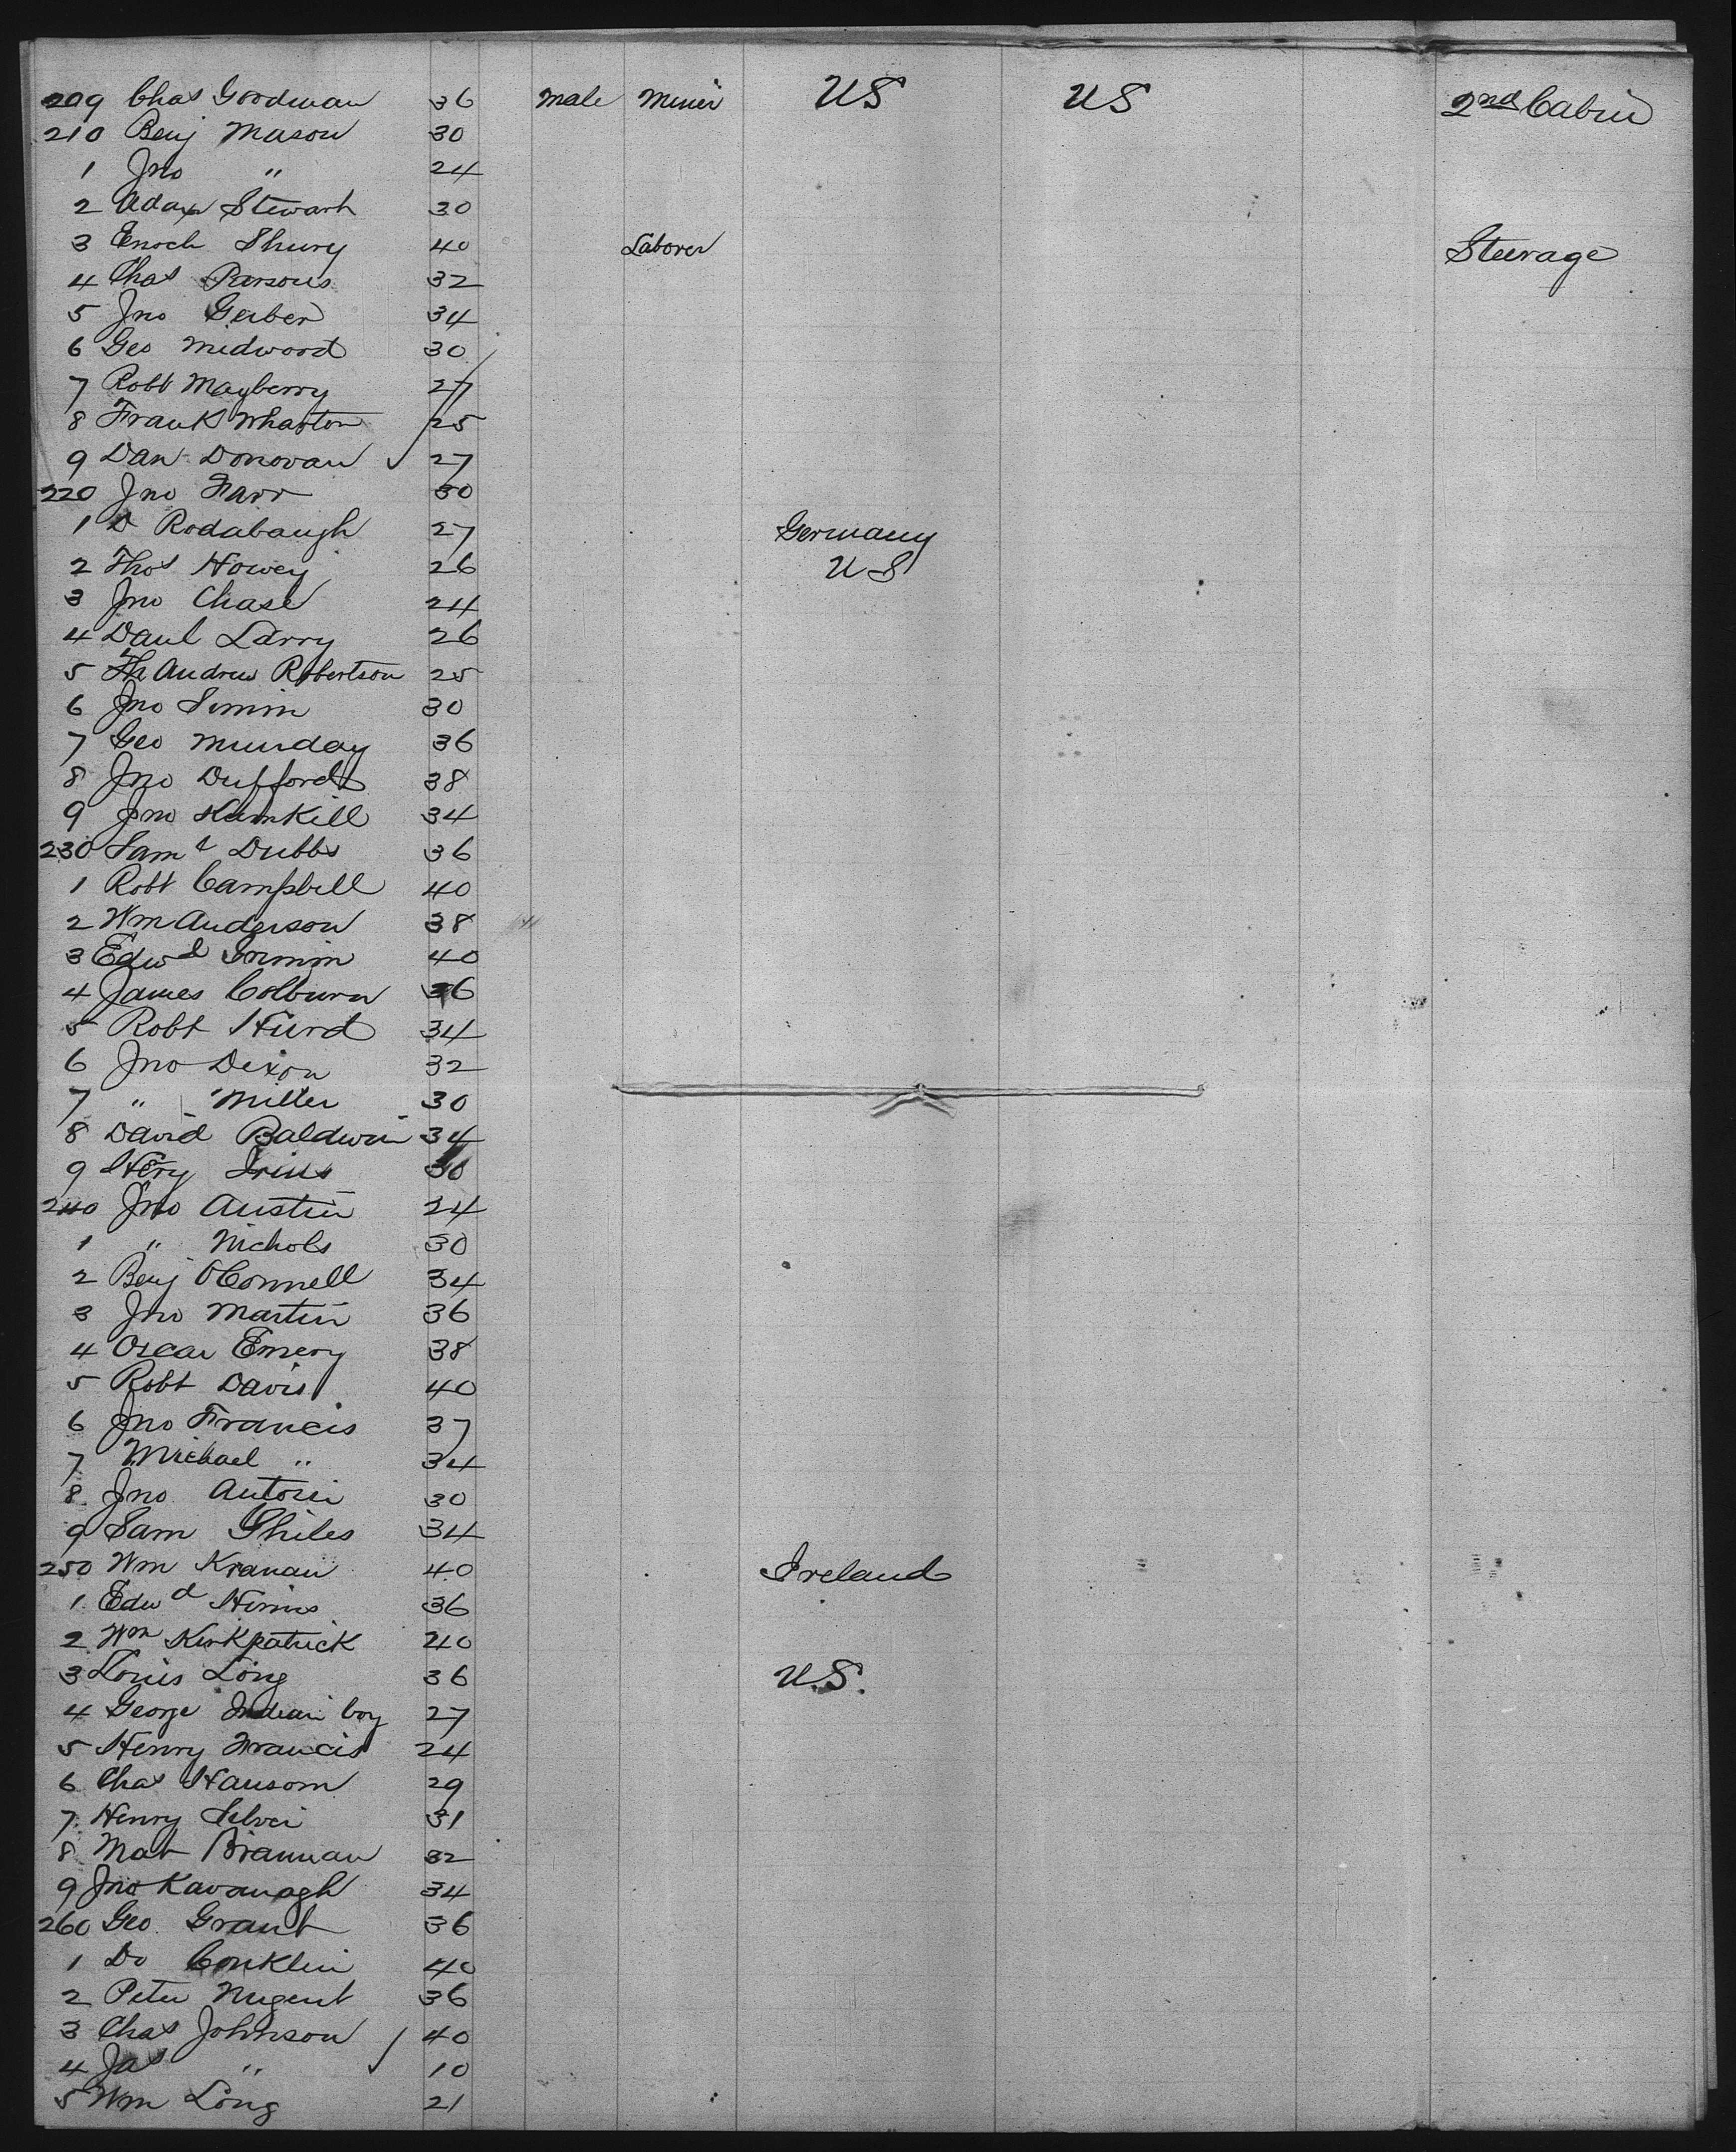 209 Chas Goodman 36 male miner US US 2nd Cabin
210 Benj Mason 30
1 Jno " 24
2 Adam Stewart 30
3 Enoch Shury 40 Laborer Steerage
4 Chas Parsons 32
5 Jno Gerber 34
6 Geo Midwood 30
7 Robt Mayberry 27
8 Frank Wharton 25
9 Dan Donovan 27
220 Jno Farr 30
1 D Rodabaugh 27 Germany
2 Thos Howey 26 US
3 Jno Chase 24
4 Danl Larry 26
5 Andrew Robertson 25
6 Jno Simm 30
7 Geo Munday 36
8 Jno Dufford 38
9 Jno 34
230 Saml Dubbs 36
1 Robt Campbell 40
2 Wm Anderson 38
3 Edwd 40
4 James Colburn 36
5 Robt Hurd 34
6 Jno Dixon 32
7 " Miller 30
8 David Baldwin 34
9 Hery 30
240 Jno Austin 24
1 " Nichols 30
2 Benj OConnell 34
3 Jno Martin 36
4 Oscar Emery 38
5 Robt Davis 40
6 Jno Francis 37
7 Michael " 34
8 Jno 30
9 Sam Philes 34
250 Wm Kranan 40 Ireland
1 Edwd 36
2 Wm Kirkpatrick 40
3 Louis Long 36 U.S.
4 George Indian boy 27
5 Henry Francis 24
6 Chas Hansom 29
7 Henry Silver 31
8 Mat Brannan 32
9 Jno Kavanagh 34
260 Geo Grant 36
1 Do Conklin 40
2 Peter Nugent 36
3 Chas Johnson 40
4 Jas " 10
5 Wm Long 21